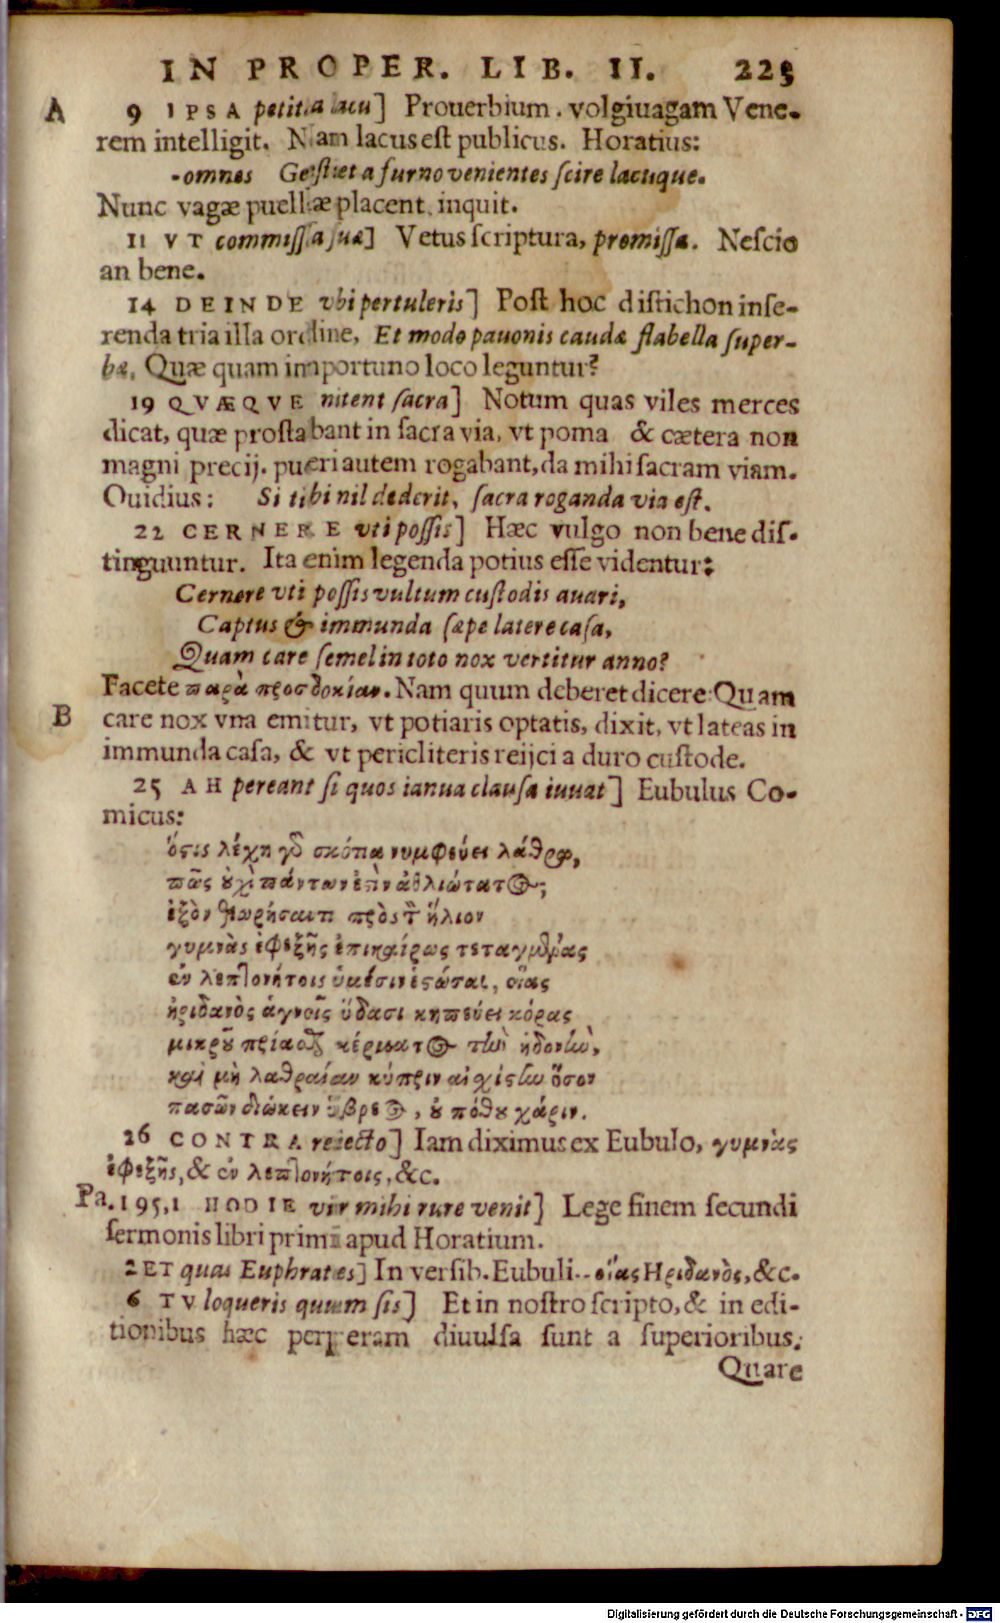 IN PROPER. LIB. II. 225
A 9 IPSA petita lacu] Prouerbium. volgiuagam Vene-
rem intelligit. Nam lacus est publicus. Horatius:
-omnes Gestiet a furno venientes scire lacuque.
Nunc vagæ puellæ placent, inquit.
11 VT commissa suæ] Vetus scriptura, promissa. Nescio
an bene.
14 DEINDE vbi pertuleris] Post hoc distichon inse-
renda tria illa ordine, Et modo pauonis caudæ flabella super-
bæ, Quæ quam importuno loco leguntur?
19 QVÆQVE nitent sacra] Notum quas viles merces
dicat, quæ prostabant in sacra via, vt poma & cætera non
magni precij. pueri autem rogabant, da mihi sacram viam.
Ouidius: Si tibi nil dederit, sacra roganda via est.
22 CERNERE vti possis] Hæc vulgo non bene dis-
tinguuntur. Ita enim legenda potius esse videntur:
Cernere vti possis vultum custodis auari,
Captus & immunda sæpe latere casa,
Quam care semel in toto nox vertitur anno?
Facete παρὰ προσδοκίαν. Nam quum deberet dicere: Quam
B care nox vna emitur, vt potiaris optatis, dixit, vt lateas in
immunda casa, & vt pericliteris reijci a duro custode.
25 AH pereant si quos ianua clausa iuuat] Eubulus Co-
micus:
ὅστις λέχη γὸ σκότια νυμφεύει λάθρᾳ,
πῶς οὐχὶ πάντων ἐστὶν ἀθλιώτατος;
ἐξὸν θεωρήσαντι πρὸς τὸν ἥλιον
γυμνὰς ἐφεξῆς ἐπικαίρως τεταγμένας
ἐν λεπτονήτοις ὑμέσιν ἑστώσας, οἵας
ἠριδανὸς ἁγνοῖς ὕδασι κηπεύει κόρας
μικροῦ πρίασθαι κέρματος τὴν ἡδονήν,
καὶ μὴ λαθραίαν κύπριν αἰσχίστην ὅσον
πασῶν διώκειν ὕβρεος, οὐ πόθου χάριν.
26 CONTRA reiecto] Iam diximus ex Eubulo, γυμνὰς
ἐφεξῆς, & ἐν λεπτονήτοις, &c.
Pa. 195, 1 HODIE vir mihi rure venit] Lege finem secundi
sermonis libri primi apud Horatium.
2 ET quas Euphrates] In versib. Eubuli.. οἵας Ηριδανὸς, &c.
6 TV loqueris quum sis] Et in nostro scripto, & in edi-
tionibus hæc perperam diuulsa sunt a superioribus.
Quare
Digitalisierung gefördert durch die Deutsche Forschungsgemeinschaft - DFG